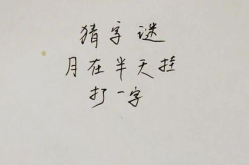 猜字谜
月在半天挂
打一字